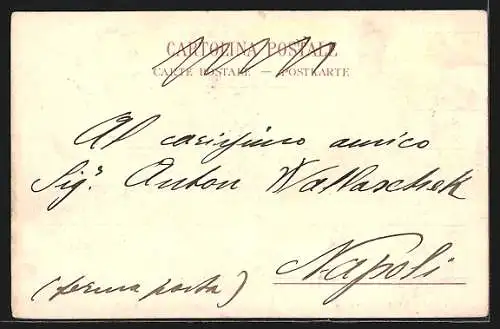 CARTOLINA POSTALE
CARTE POSTALE — POSTKARTE
Al carissimo amico
Sigr. Anton Wallaschek
Napoli
(ferma posta)